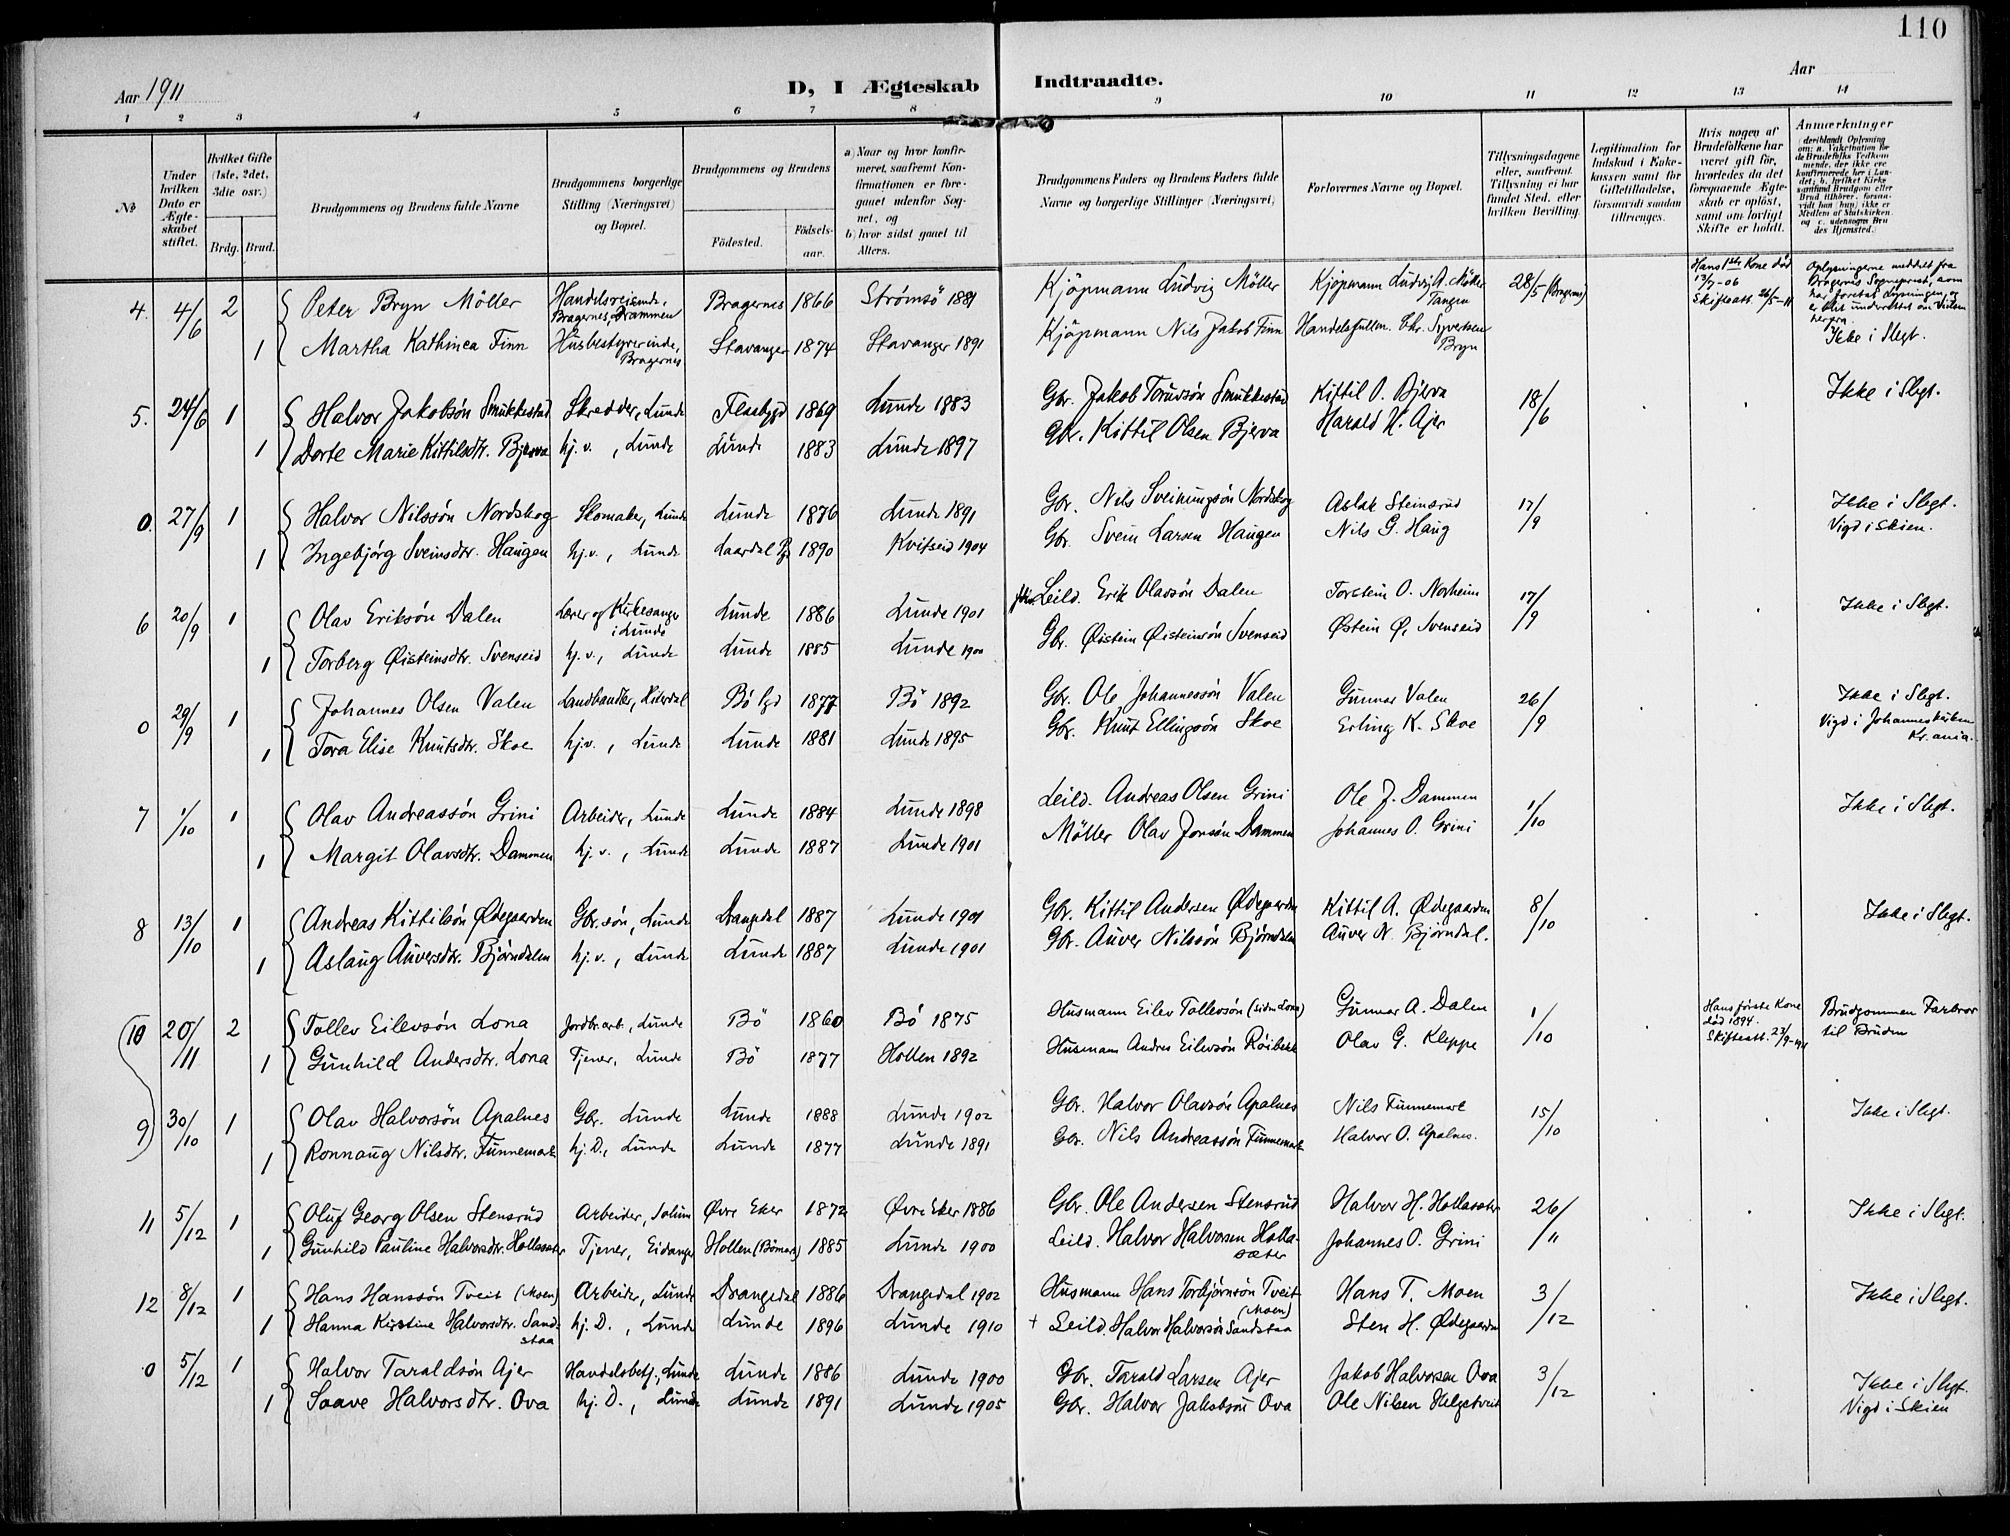 110
Aar 1911
D, I Ægteskab Indtraadte.
Aar
1 2 3 4 5 6 7 8 9 10 11 12 13 14
No
Under hvilken Dato er Ægteskabet stiftet.
Hvilket Gifte (1ste, 2det, 3die osv.)
Brdg. Brud.
Brudgommens og Brudens fulde Navne
Brudgommens borgerlige Stilling (Næringsvei) og Bopæl.
Brudgommens og Brudens
Födested. Födsels-aar.
a) Naar og hvor konfirmeret, saafremt Konfirmationen er foregaaet udenfor Sognet, og
b) hvor sidst gaaet til Alters.
Brudgommens Faders og Brudens Faders fulde Navne og borgerlige Stillinger (Næringsvei)
Forlovernes Navne og Bopæl.
Tillysningsdagene eller, saafremt Tillysning ei har fundet Sted, efter hvilken Bevilling.
Legitimation for Indskud i Enkekassen samt for Giftetilladelse, forsaavidt saadan tiltrænges.
Hvis nogen af Brudefolkene har været gift för, hvorledes da det foregaaende Ægteskab er oplöst, samt om lovligt Skifte er holdt.
Anmærkninger (deriblandt Oplysning om: a. Vakcination for de Brudefolks Vedkommende, der ikke ere konfirmerede her i Landet; b. hvilket Kirkesamfund Brudgom eller Brud tilhörer, forsaavidt han (hun) ikke er Medlem af Statskirken, og c. udensogns Brudes Hjemsted.)
4. 4/6 2 Peter Bryn Möller Handelsreisende, Bragernes, Drammen Bragernes 1866 Strømsö 1881 Kjöpmann Ludvig Möller Kjöpmann Ludvig A. Möller Tangen 28/5 (Bragernes) Hans 1ste Kone död 13/7-06 Skifteatt. 26/5-11 Oplysningerne meddelt fra Bragernes Sogneprest, som har foretat Lysningen, og er blit underrettet om Vielsen herfra. Ikke i Slegt.
1 Martha Kathinca Finn Husbestyrerinde, Bragernes Stavanger 1874 Stavanger 1891 Kjöpmann Nils Jakob Finn Handelsfullm. Chr. Syvertsen Bryn
5. 24/6 1 Halvor Jakobsön Smukkestad Skredder, Lunde Flaabygd 1869 Lunde 1883 Gbr. Jakob Toruvsön Smukkestad Kittil O. Bjerva 18/6 Ikke i Slegt.
1 Dorte Marie Kittilsdtr. Bjerva hj. v., Lunde Lunde 1883 Lunde 1897 Gbr. Kittil Olsen Bjerva Harald H. Ajer
0. 27/9 1 Halvor Nilssön Nordskog Skomaker, Lunde Lunde 1876 Lunde 1891 Gbr. Nils Sveinungsön Nordskog Aslak Steinsrud 17/9 Ikke i Slegt. Vigd i Skien.
1 Ingebjörg Sveinsdtr. Haugen hj. v., Lunde Laardal 1890 Kviteseid 1904 Gbr. Svein Larsen Haugen Nils G. Haug
6 20/9 1 Olav Eriksön Dalen Lærer og Kirkesanger i Lunde Lunde 1886 Lunde 1901 Leild. Erik Olavsön Dalen Torstein O. Norheim 17/9 Ikke i Slegt.
1 Torberg Øisteinsdtr. Svenseid hj. v., Lunde Lunde 1885 Lunde 1900 Gbr. Øistein Øisteinsön Svenseid Østein Ø. Svenseid
0 29/9 1 Johannes Olsen Valen Landhandler, Hiterdal Bö 1877 Bö 1892 Gbr. Ole Johannessön Valen Gunnar Valen 26/9 Ikke i Slegt. Vigd i Johanneskirken Kr.ania.
1 Tora Elise Knutsdtr. Skoe hj. v., Lunde Lunde 1881 Lunde 1895 Gbr. Knut Ellingsön Skoe Erling K. Skoe
7 1/10 1 Olav Andreassön Grini Arbeider, Lunde Lunde 1884 Lunde 1898 Leild. Andreas Olsen Grini Ole J. Dammen 1/10 Ikke i Slegt.
1 Margit Olavsdtr. Dammen hj. v., Lunde Lunde 1887 Lunde 1901 Möller Olav Jonsön Dammen Johannes O. Grini
8 13/10 1 Andreas Kittilsön Ødegaarden Gbr. sön, Lunde Drangedal 1887 Lunde 1901 Gbr. Kittil Andersen Ødegaarden Kittil A. Ødegaarden 8/10 Ikke i Slegt.
1 Aslaug Auversdtr. Bjørndalen hj. v., Lunde Lunde 1887 Lunde 1901 Gbr. Auver Nilssön Bjørndalen Auver N. Bjørndal.
10 20/11 2 Tollev Eilevsön Lona Jordbr.arb., Lunde Bö 1860 Bö 1875 Husmann Eilev Tollevsön (siden Lona) Gunnar A. Dalen 1/10 Hans förste Kone död 1894. Skifteatt. 23/9-1911 Brudgommen Farbror til Bruden
1 Gunhild Andersdtr. Lona Tjener, Lunde Bö 1877 Hollen 1892 Husmann Anders Eilevsön Olav G. Kleppe
9 30/10 1 Olav Halvorsön Apalnes Gbr. Lunde Lunde 1888 Lunde 1902 Gbr. Halvor Olavsön Apalnes Nils Funnemark 15/10 Ikke i Slegt.
1 Ronnaug Nilsdtr. Funnemark hj. D., Lunde Lunde 1877 Lunde 1891 Gbr. Nils Andreassön Funnemark Halvor O. Apalnes.
11 5/12 1 Oluf Georg Olsen Stensrud Arbeider, Solum Øvre Eker 1872 Øvre Eker 1886 Gbr. Ole Andersen Stensrud Halvor H. Hollasæter 26/11 Ikke i Slegt.
1 Gunhild Pauline Halvorsdtr. Hollasæter Tjener, Eidanger Hollen (Bömark) 1885 Lunde 1900 Leild. Halvor Halvorsen Hollasæter Johannes O. Grini
12 8/12 1 Hans Hanssön Tveit (Moen) Arbeider, Lunde Drangedal 1886 Drangedal 1902 Husmann Hans Torbjörnsön Tveit (Moen) Hans T. Moen 3/12 Ikke i Slegt.
1 Hanna Kirstine Halvorsdtr. Sandstaa hj. D., Lunde Lunde 1896 Lunde 1910 + Leild. Halvor Halvorsön Sandstaa Sten H. Ødegaarden
0 5/12 1 Halvor Taraldsön Ajer Handelsbetj., Lunde Lunde 1886 Lunde 1900 Gbr. Tarald Larsen Ajer Jakob Halvorsen Ova 3/12 Ikke i Slegt. Vigd i Skien
1 Saave Halvorsdtr. Ova hj. D., Lunde Lunde 1891 Lunde 1905 Gbr. Halvor Jakobsön Ova Ole Nilsen Helgetveit